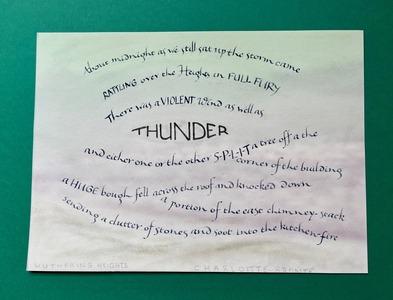 About midnight as we still sat up the storm came
RATTLING over the Heights in FULL FURY
There was a VIOLENT wind as well as
THUNDER
and either one or the other S-P-L-I-T a tree off a the
corner of the building
a HUGE bough fell across the roof and knocked down
a portion of the east chimney-stack
sending a clatter of stones and soot into the kitchen-fire
WUTHERING HEIGHTS
CHARLOTTE BRONTE